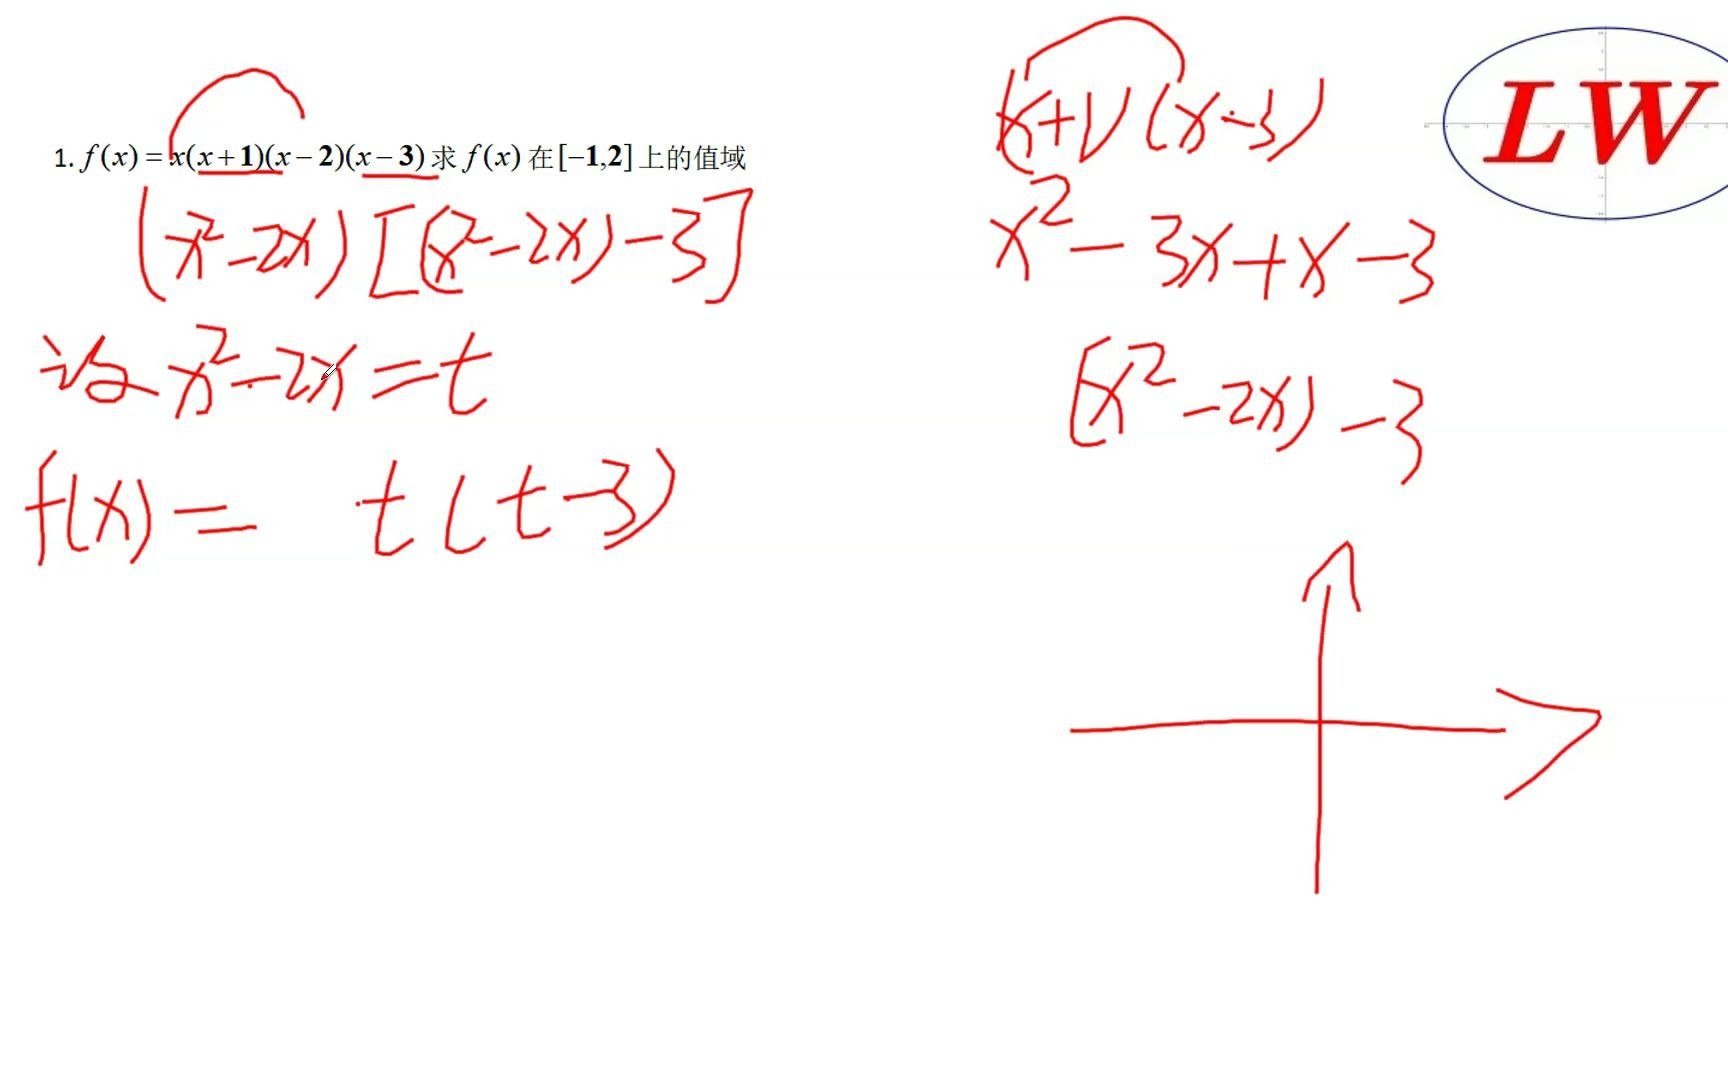 1. f(x) = x(x+1)(x−2)(x−3) 求 f(x) 在[−1,2]上的值域
(x²−2x)[(x²−2x)−3]
设 x²−2x=t
f(x)= t(t−3)
(x+1)(x−3)
x²−3x+x−3
(x²−2x)−3
LW